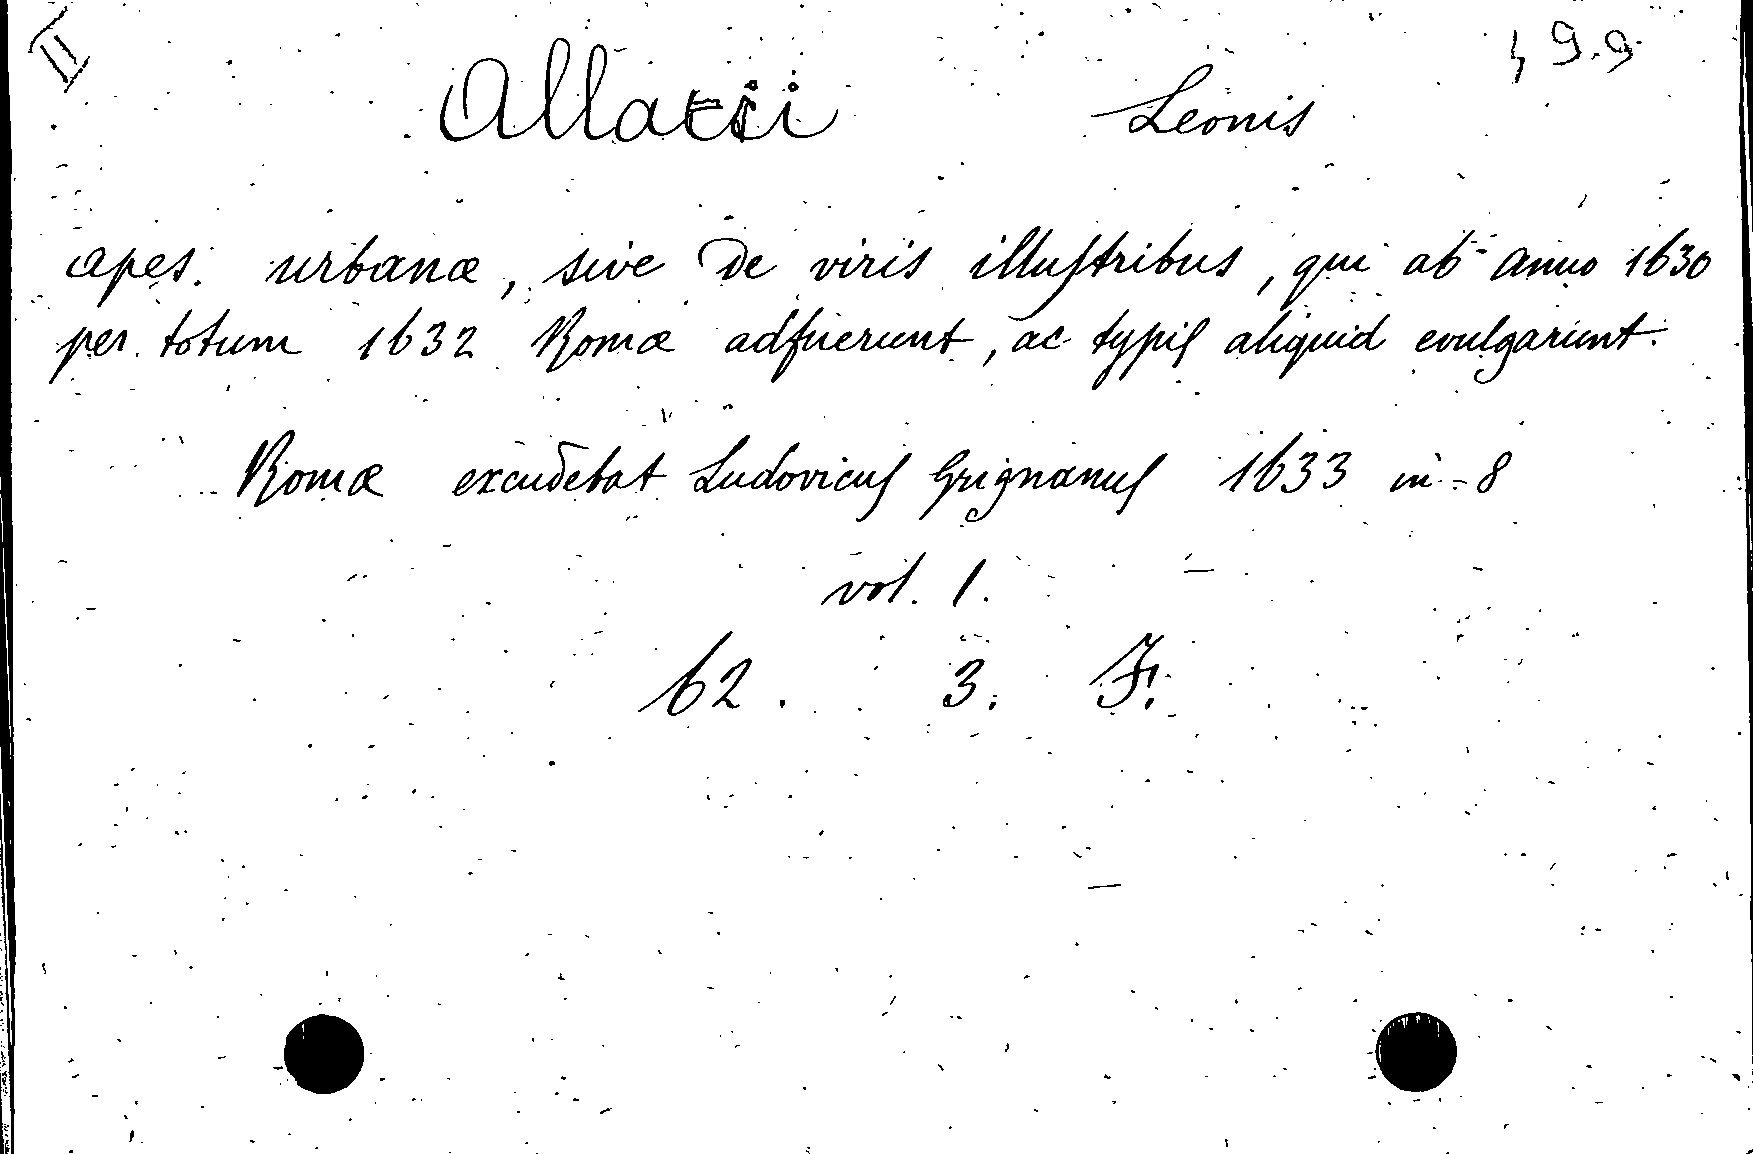 II
Allatii Leonis
apes. urbanæ, sive De viris illuſtribus, qui ab anno 1630
per totum 1632 Romæ adfuerunt, ac typis aliquid evulgarunt.
Romæ excudebat Ludovicus Grignanus 1633 in-8
vol. 1.
62. 3. F.